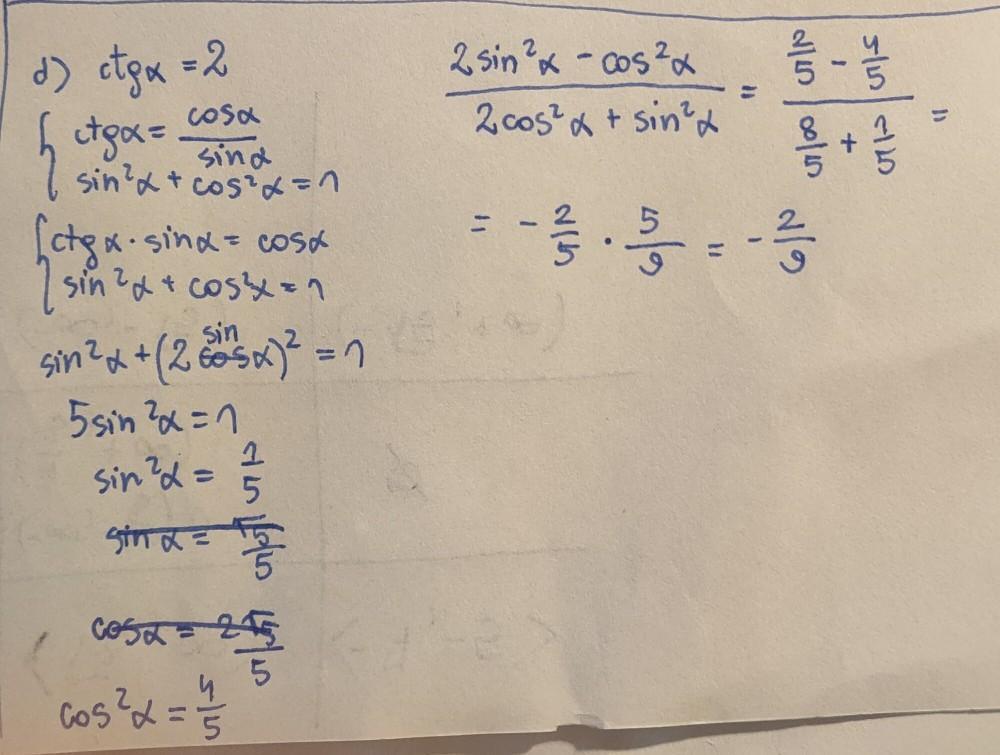 d) ctgα = 2
{ ctgα = cosα/sinα
sin²α + cos²α = 1
{ ctgα · sinα = cosα
sin²α + cos²α = 1
sin²α + (2 sin α)² = 1
5sin²α = 1
sin²α = 1/5
sinα = √5/5
cosα = 2√5/5
cos²α = 4/5
(2sin²α - cos²α)/(2cos²α + sin²α) = (2/5 - 4/5)/(8/5 + 1/5) =
= - 2/5 · 5/9 = - 2/9